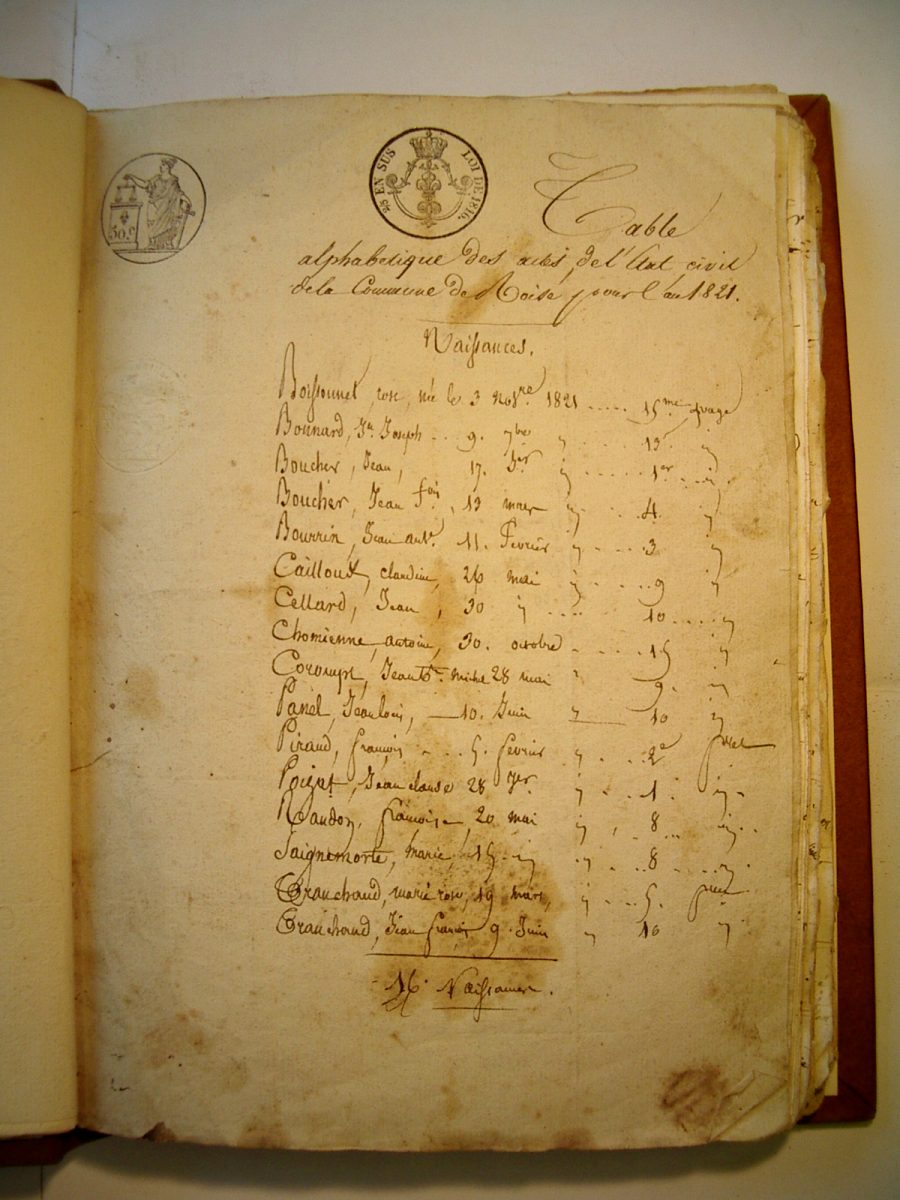 50.c
25 EN SUS LOI DE 1816.
Table
alphabetique des actes de l'état civil
de la Commune de Moise pour l'an 1821.
Naissances.
Boissonnet, rose, née le 3 novbre 1821 ..... 15me page
Bonnard, Jn. Joseph .. 9. 7bre " .... 13 "
Boucher, Jean, 17. Jer " .... 1er .... "
Boucher, Jean fois, 13 mars " .... 4. "
Bourrin, Jean ant. 11. Fevrier " .... 3 "
Cailloux, claudine, 26 mai " .... 9 "
Cellard, Jean, 30 " ..... 10 .... "
Chomienne, antoine, 30. octobre ..... 15 "
Jean Bte. 28 mai " 9. "
Panel, Jean louis, — 10. Juin " — 10 "
Piraud, françois .... 5. fevrier " ... 2e
Poizat, Jean claude 28 " ... 1. "
françoise, 20 mai " .... 8 "
Saignemorte, marie, 15. " " .... 8 .... "
Tranchand, marie rose, 19 mars, " ... 5.
Tranchand, Jean françois 9. Juin " 10 "
16. Naissances.